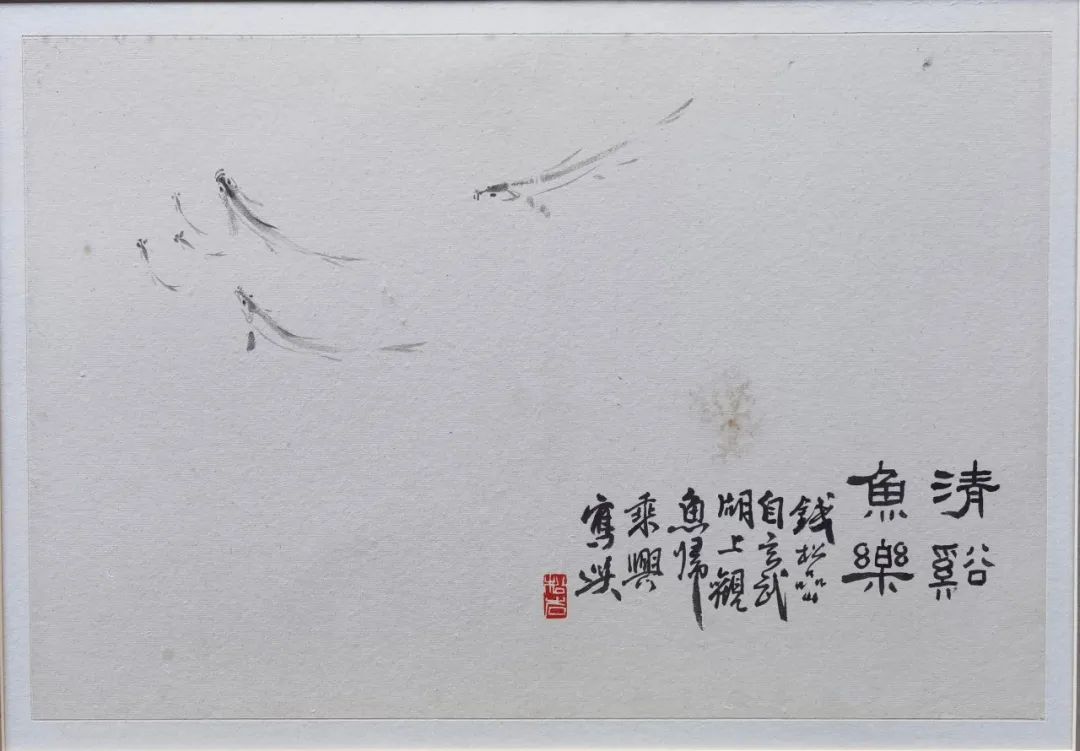 清谿
魚樂
錢松嵒
自玄武
湖上觀
魚歸
乘興
寫
松